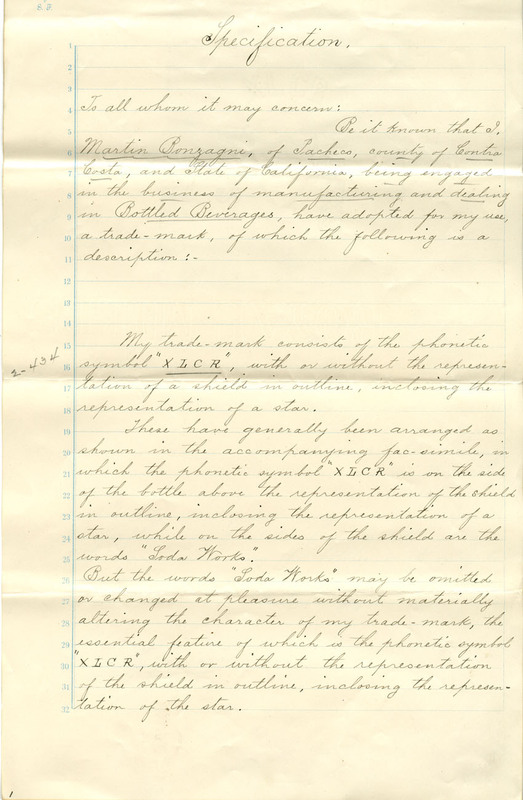 Specification.
To all whom it may concern:
Be it known that I,
Martin Bonzagni, of Pacheco, county of Contra
Costa, and State of California, being engaged
in the business of manufacturing and dealing
in Bottled Beverages, have adopted for my use,
a trade-mark, of which the following is a
description:-
My trade-mark consists of the phonetic
symbol "XLCR", with or without the represen-
2-434
tation of a shield in outline, inclosing the
representation of a star.
These have generally been arranged as
shown in the accompanying fac-simile, in
which the phonetic symbol "XLCR" is on the side
of the bottle above the representation of the shield
in outline, inclosing the representation of a
star, while on the sides of the shield are the
words "Soda Works".
But the words "Soda Works" may be omitted
or changed at pleasure without materially
altering the character of my trade-mark, the
essential feature of which is the phonetic symbol
"XLCR", with or without the representation
of the shield in outline, inclosing the represen-
tation of the star.
1